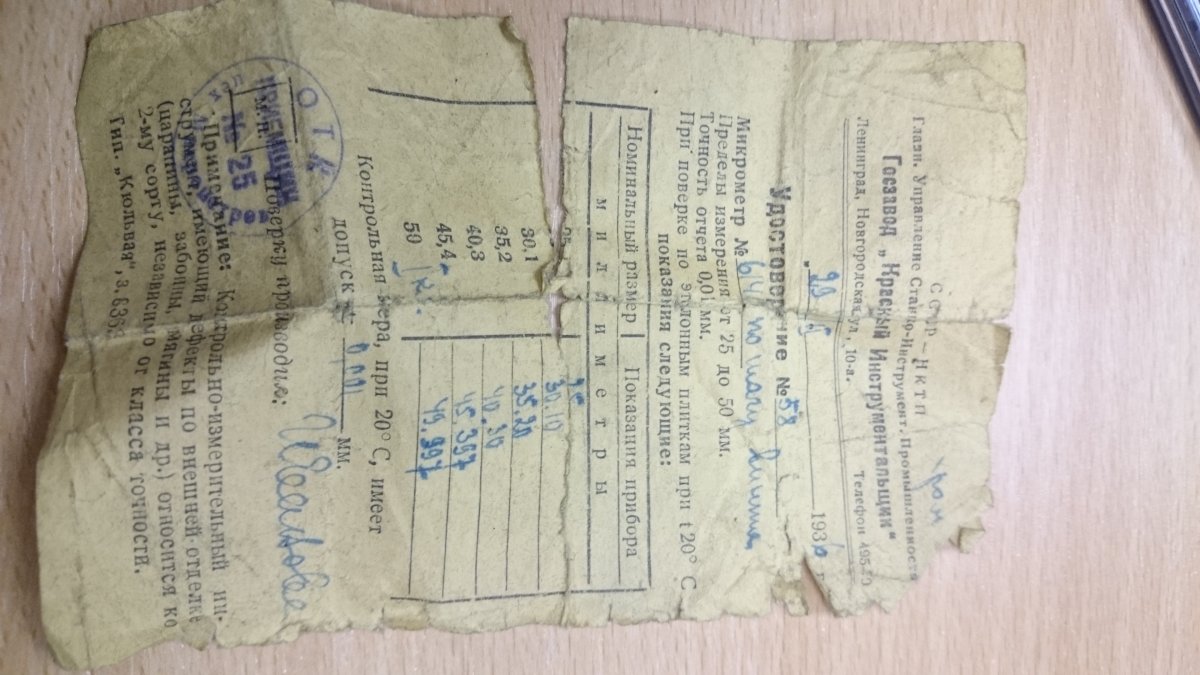 СССР — НКТП
Главн. Управление Станко-Инструмент. Промышленности
Госзавод „Красный Инструментальщик“
Ленинград, Новгородская ул., 10-а. Телефон 495-
„29 5 1936
Удостоверение № 58
Микрометр №
Пределы измерения от 25 до 50 мм.
Точность отчета 0,01 мм.
При поверке по эталонным плиткам при t 20° С
показания следующие:
Номинальный размер Показания прибора
миллиметры
25 25
30,1 30.10
35,2 35.20
40,3 40.30
45,4 45.397
50 49.997
Контрольная мера, при 20° С, имеет
допуск ±: 0,001 мм.
Поверку производил:
ОТК
ПРИЕМЩИК
№ 25
М.п.
Примечание: Контрольно-измерительный ин-
струмент, имеющий дефекты по внешней отделке
(царапины, забоины, мягины и др.) относится ко
2-му сорту, независимо от класса точности.
Тип. „Кюльвая“, з.